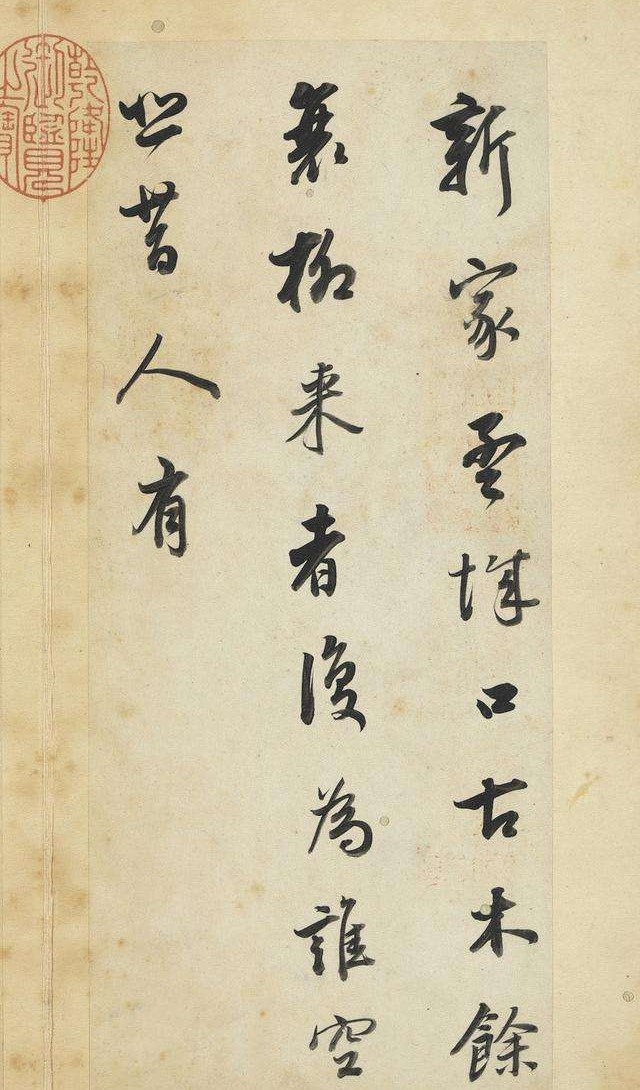 新家孟城口古木餘
衰柳来者復為誰空
悲昔人有
乾隆
御覽
之寶